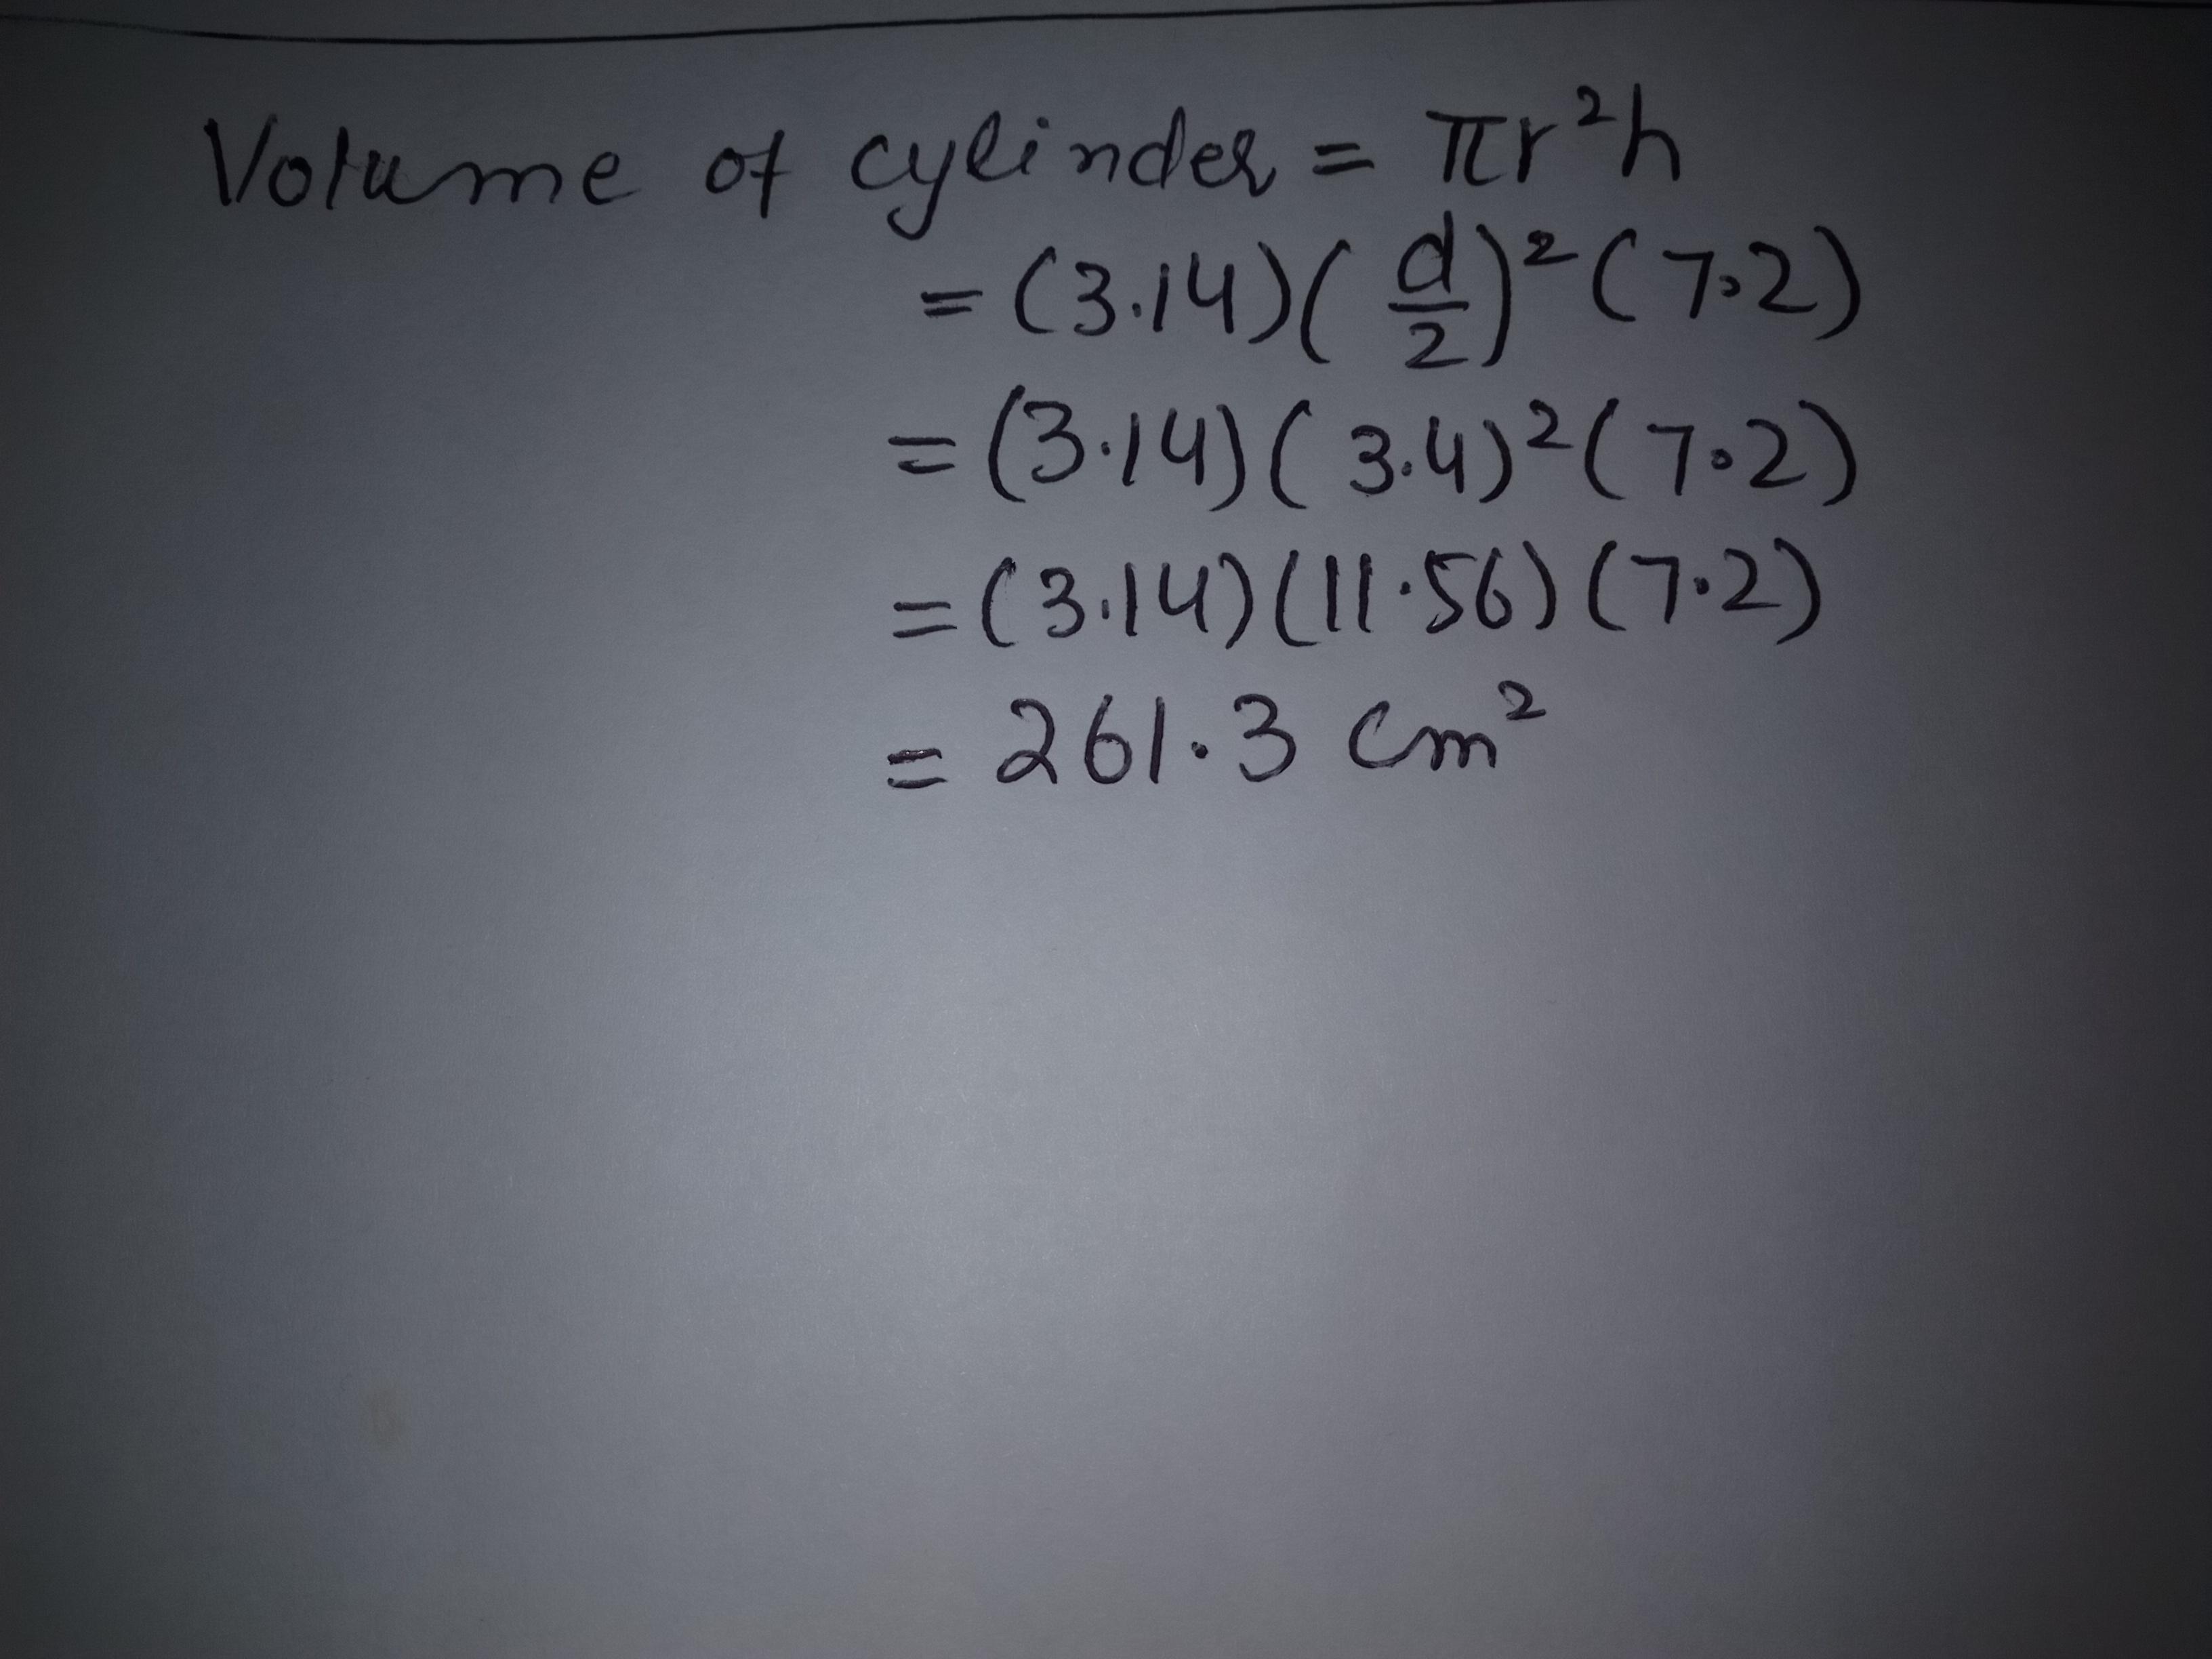 Volume of cylinder = πr²h
= (3.14)(d/2)²(7.2)
= (3.14)(3.4)²(7.2)
= (3.14)(11.56)(7.2)
= 261.3 cm²